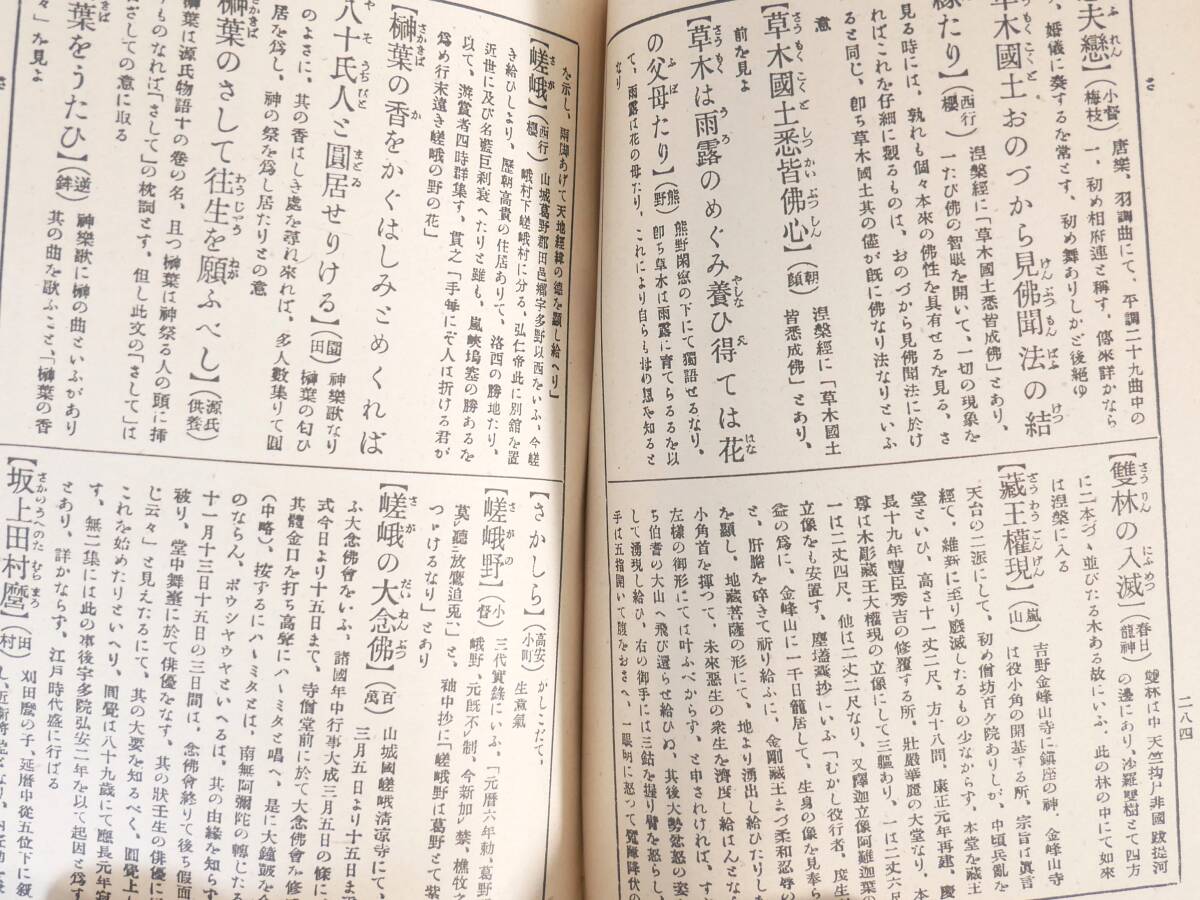 さ
夫戀】（小督）（梅枝）唐樂、羽調曲にて、平調二十九曲中の
一、初め相府連と稱す、傳來詳かなら
、婚儀に奏するを常とす、初め舞ありしかど後絶ゆ
草木國土おのづから見佛聞法の結
縁たり】（西行）（櫻）一たび佛の智眼を開いて、一切の現象を
見る時には、孰れも個々本來の佛性を具有せるを見る、さ
ればこれを仔細に觀るものは、おのづから見佛聞法に於け
ると同じ、卽ち草木國土其の儘が既に佛なり法なりといふ
意
【草木國土悉皆佛心】（朝）（顏）涅槃經に「草木國土
皆悉成佛」とあり、
前を見よ
【草木は雨露のめぐみ養ひ得ては花
の父母たり】（熊）（野）熊野閑窓の下にて獨語せるなり、
卽ち草木は雨露に育てらるるを以
て、雨露は花の母たり、これにより自らも母の恩を知ると
なり
【雙林の入滅】（春日）（龍神）
の邊にあり、沙羅雙樹とて四方
に二本づゝ並びたる木ある故にいふ、此の林の中にて如來
は涅槃に入る
【藏王權現】（嵐）（山）吉野金峰山寺に鎭座の神、金峰山寺
は役小角の開基する所、宗旨は眞言
天台の二派にして、初め僧坊百ケ院ありしが、中頃兵亂を
經て、維新に至り廢滅したるもの少なからず、本堂を藏王
堂といひ、高さ十一丈二尺、方十八間、康正元年再建、慶
長十九年豐臣秀吉の修覆する所、壯嚴華麗の大堂なり、本
尊は木彫藏王大權現の立像にして三軀あり、一は二丈六尺
一は二丈四尺、他は二丈二尺なり、又釋迦立像阿難迦葉の
立像をも安置す、塵塲嚢抄にいふ「むかし役行者、度生
益の爲に、金峰山に一千日籠居して、生身の像を見奉ら
と、肝膽を碎きて祈り給ふに、金剛藏王まづ柔和忍辱の
を顯し、地藏菩薩の形にて、地より湧出し給ひたりしを
小角首を掉つて、未來惡生の衆生を濟度し給はんとな
左樣の御形にては叶ふべからず、と申されければ、す
ち伯耆の大山へ飛び還らせ給ひぬ、其後大勢忿怒の姿
して湧現し給ひ、右の御手には三鈷を握り臂を怒らし、
手は五指開いて腹をおさへ、一眼明に怒つて魔障降伏の
二八四
を示し、兩脚あげて天地經緯の德を顯し給へり」
【嵯峨】（西行）（櫻）山城葛野郡田邑鄕宇多野以西をいふ、今嵯
峨村下嵯峨村に分る、弘仁帝此に別舘を置
き給ひしより、歷朝高貴の住居ありて、洛西の勝地たり、
近世に及び名藍巨刹衰へたりと雖も、嵐峽塢墓の勝あるを
以て、游賞者四時群集す、貫之「手每にぞ人は折ける君が
爲め行末遠き嵯峨の野の花」
【榊葉の香をかぐはしみとめくれば
八十氏人ぞ圓居せりける】（闘）（田）神樂歌なり
榊葉の匂ひ
のよさに、其の香はしき處を尋れ來れば、多人數集りて圓
居を爲し、神の祭を爲し居たりとの意
榊葉のさして往生を願ふべし】（源氏）（供養）
榊葉は源氏物語十の卷の名、且つ榊葉は神祭る人の頭に揷
すものなれば「さして」の枕詞とす、但し此文の「さして」は
ざしての意に取る
葉をうたひ】（逆）（鉾）神樂歌に榊の曲といふがあり
其の曲を歌ふこと、「榊葉の香
」を見よ
【さかしら】（高安）（小町）かしこだて、
生意氣
【嵯峨野】（小）（督）三代實錄にいふ、「元曆六年勅、葛野
峨野、元既不制、今新加禁、樵牧之
莫聽放鷹追兎」と、袖中抄に「嵯峨野は葛野とて紫
つゞけるなり」とあり
【嵯峨の大念佛】（百）（萬）山城國嵯峨清凉寺にて、
三月五日より十五日
ふ大念佛會をいふ、諸國年中行事大成三月五日の條に
式今日より十五日まで、寺僧堂前に於て大念佛會を修
其體金口を打ち高聲にハーミタと唱へ、是に大鐘皷を
（中略）、按するにハーミタとは、南無阿彌陀の轉じたる
のならん、ボウシヤウといへるは、其の由緣を知らず
十一月十三日十五日の三日間は、念佛會終りて後ち假面
被り、堂中舞臺に於て俳優をなす、其の狀壬生の俳優に
じ云々」と見えたるにて、其の大要を知るべく、圓覺上
これを始めたりといへり、圓覺は八十九歲にて應長元年寂
す、無二集には此の事後宇多院弘安二年を以て起因と爲す
とあり、詳かならず、江戶時代盛に行はる
【坂上田村麿】（田）（村）刈田麿の子、延曆中從五位下に叙